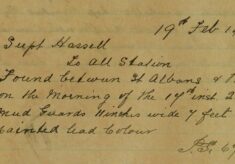 19th Feb 1
Supt Hassell
To All Station
Found between St Albans &
on the Morning of the 17th inst 2
Mud Guards 9 inches wide 7 feet
painted lead Colour